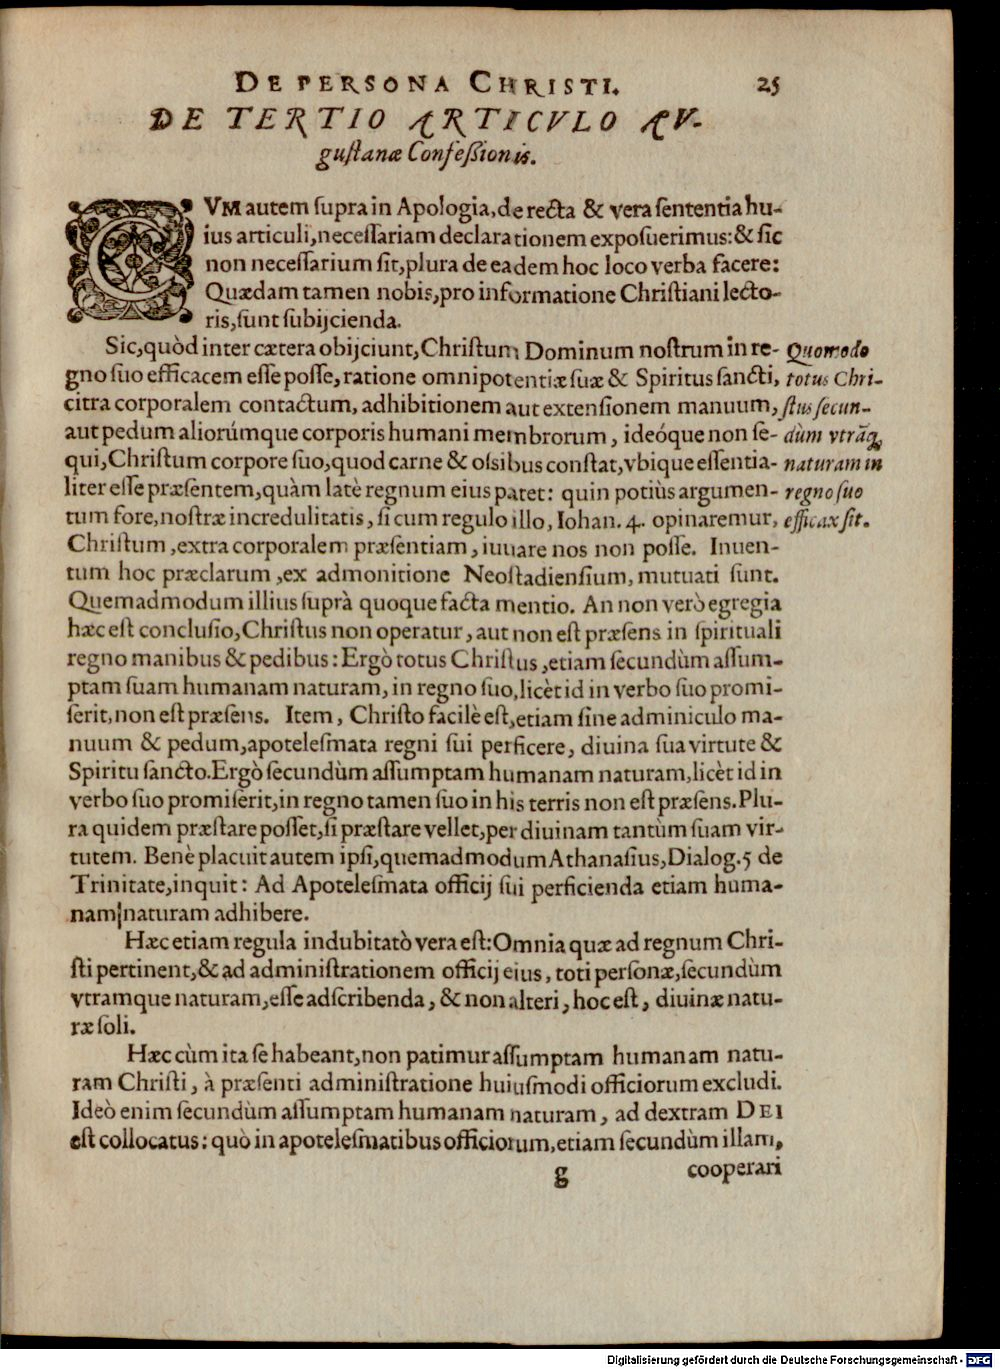 DE PERSONA CHRISTI. 25
DE TERTIO ARTICVLO AV-
guſtanæ Confeßionis.
CVM autem ſupra in Apologia, de recta & vera ſententia hu-
ius articuli, neceſſariam declarationem expoſuerimus: & ſic
non neceſſarium ſit, plura de eadem hoc loco verba facere:
Quædam tamen nobis, pro informatione Chriſtiani lecto-
ris, ſunt ſubijcienda.
Sic, quòd inter cætera obijciunt, Chriſtum Dominum noſtrum in re-
gno ſuo efficacem eſſe poſſe, ratione omnipotentiæ ſuæ & Spiritus ſancti,
citra corporalem contactum, adhibitionem aut extenſionem manuum,
aut pedum aliorúmque corporis humani membrorum, ideóque non ſe-
qui, Chriſtum corpore ſuo, quod carne & oſsibus conſtat, vbique eſſentia-
liter eſſe præſentem, quàm latè regnum eius patet: quin potiùs argumen-
tum fore, noſtræ incredulitatis, ſi cum regulo illo, Iohan. 4. opinaremur,
Chriſtum, extra corporalem præſentiam, iuuare nos non poſſe. Inuen-
tum hoc præclarum, ex admonitione Neoſtadienſium, mutuati ſunt.
Quemadmodum illius ſuprà quoque facta mentio. An non verò egregia
hæc eſt concluſio, Chriſtus non operatur, aut non eſt præſens in ſpirituali
regno manibus & pedibus: Ergò totus Chriſtus, etiam ſecundùm aſſum-
ptam ſuam humanam naturam, in regno ſuo, licèt id in verbo ſuo promi-
ſerit, non eſt præſens. Item, Chriſto facilè eſt, etiam ſine adminiculo ma-
nuum & pedum, apoteleſmata regni ſui perficere, diuina ſua virtute &
Spiritu ſancto. Ergò ſecundùm aſſumptam humanam naturam, licèt id in
verbo ſuo promiſerit, in regno tamen ſuo in his terris non eſt præſens. Plu-
ra quidem præſtare poſſet, ſi præſtare vellet, per diuinam tantùm ſuam vir-
tutem. Benè placuit autem ipſi, quemadmodum Athanaſius, Dialog. 5 de
Trinitate, inquit: Ad Apoteleſmata officij ſui perficienda etiam huma-
nam naturam adhibere.
Hæc etiam regula indubitatò vera eſt: Omnia quæ ad regnum Chri-
ſti pertinent, & ad adminiſtrationem officij eius, toti perſonæ, ſecundùm
vtramque naturam, eſſe adſcribenda, & non alteri, hoc eſt, diuinæ natu-
ræ ſoli.
Hæc cùm ita ſe habeant, non patimur aſſumptam humanam natu-
ram Chriſti, à præſenti adminiſtratione huiuſmodi officiorum excludi.
Ideò enim ſecundùm aſſumptam humanam naturam, ad dextram DEI
eſt collocatus: quò in apoteleſmatibus officiorum, etiam ſecundùm illam,
g cooperari
Quomodo
totus Chri-
ſtus ſecun-
dùm vtrāq;
naturam in
regno ſuo
efficax ſit.
Digitalisierung gefördert durch die Deutsche Forschungsgemeinschaft - DFG